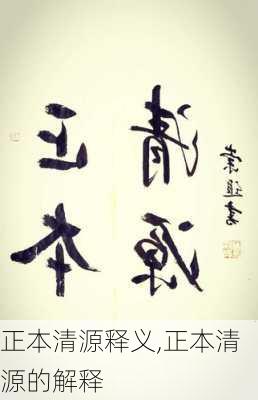 正本
清源
正本清源释义,正本清
源的解释